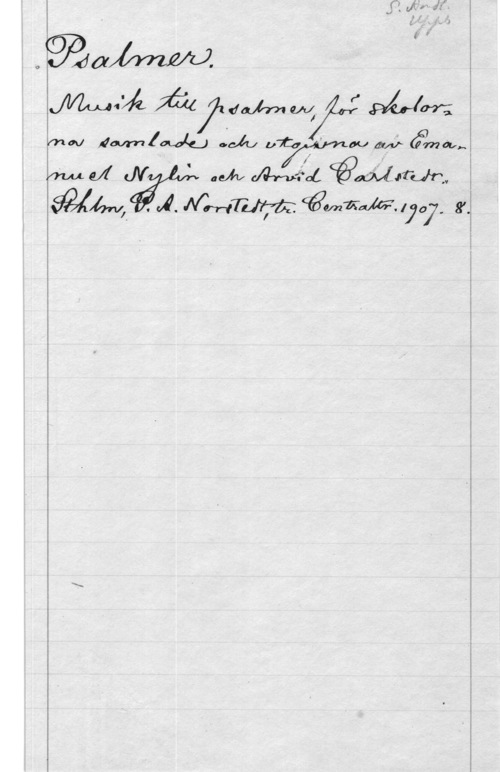 S. Andl.
Upps
Psalmer.
Musik till psalmer, för skolor=
na samlade och utgivna av Ema-
nuel Nylin och Arvid Carlstedt.
Sthlm, P. A. Norstedt, tr. Centraltr. 1907. 8.